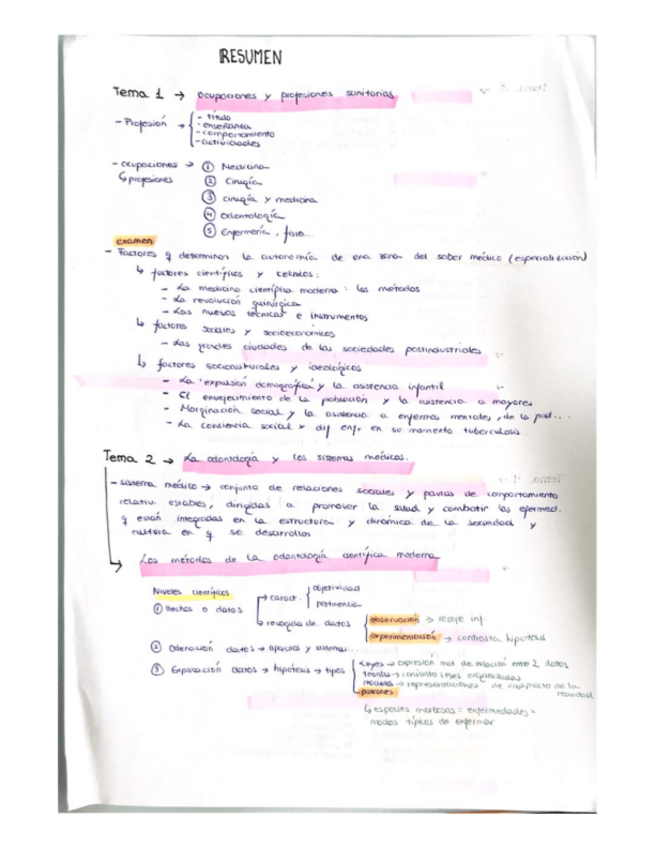 RESUMEN
Tema 1 → ocupaciones y profesiones sanitarias
- Profesión → - título
- enseñanza
- comportamiento
- actividades
- ocupaciones → ① Medicina
↳ profesiones ② Cirugía
③ cirugía y medicina
④ odontología
⑤ Enfermería, fisio...
examen
- Factores q determinan la autonomía de una zona del saber médico (especialización)
↳ factores científicos y técnicos:
- La medicina científica moderna: los métodos
- La revolución quirúrgica
- Las nuevas técnicas e instrumentos
↳ factores sociales y socioeconómicos
- Las grandes ciudades de las sociedades postindustriales
↳ factores socioculturales y ideológicos
- La "expansión demográfica" y la asistencia infantil
- El envejecimiento de la población y la asistencia a mayores
- Marginación social y la asistencia a enfermos mentales, de la piel...
- La conciencia social x dif enfr. en su momento tuberculosis...
Tema 2 → La odontología y los sistemas médicos.
- sistema médico → conjunto de relaciones sociales y pautas de comportamiento
relativ. estables, dirigidas a promover la salud y combatir las efermed.
q están integradas en la estructura y dinámica de la sociedad y
cultura en q se desarrollan
↳ Los métodos de la odontología científica moderna
Niveles científicos
① Hechos o datos → caract. objetividad
pertinencia
↳ recogida de datos observación → recoje inf.
experimentación → contrasta hipótesis
② Ordenación datos → aparatos y sistemas...
③ Explicación datos → hipótesis → tipos Leyes → expresión mat de relación entre 2 datos
teorías → conjunto leyes organizadas
modelos → representaciones de un aspecto de la realidad
patrones
↳ especies morbosas = enfermedades =
modos típicos de enfermar